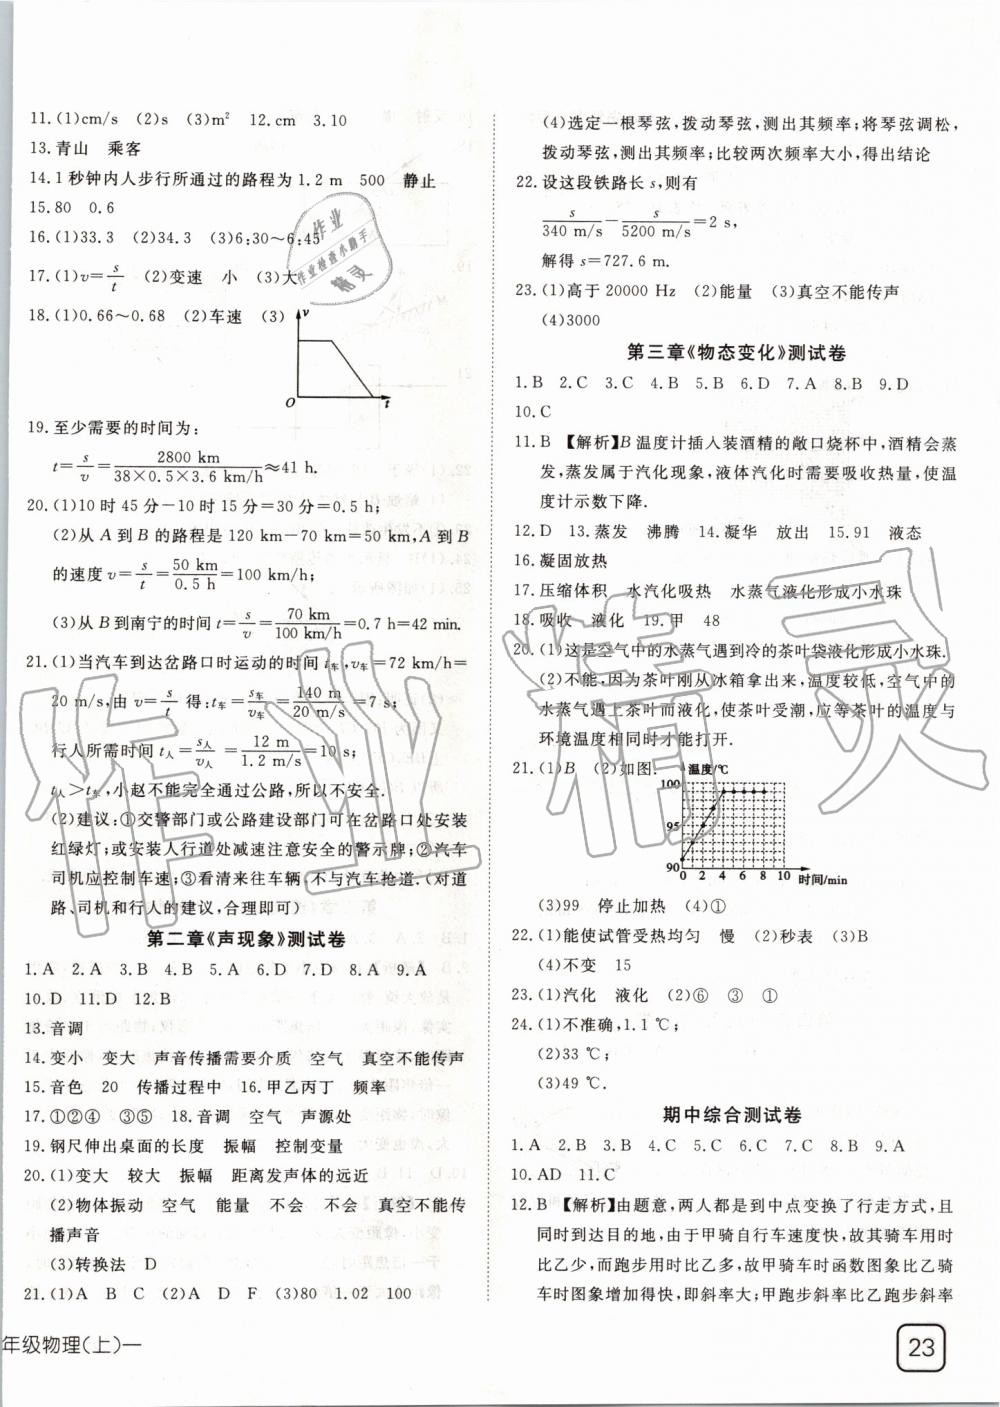 11.(1)cm/s (2)s (3)m² 12.cm 3.10
13.青山 乘客
14.1秒钟内人步行所通过的路程为1.2 m 500 静止
15.80 0.6
16.(1)33.3 (2)34.3 (3)6:30~6:45
17.(1)v=s/t (2)变速 小 (3)大
18.(1)0.66~0.68 (2)车速 (3)
v
O t
19.至少需要的时间为:
t=s/v=2800 km/(38×0.5×3.6 km/h)≈41 h.
20.(1)10时45分-10时15分=30分=0.5 h;
(2)从A到B的路程是120 km-70 km=50 km,A到B
的速度v=s/t=50 km/0.5 h=100 km/h;
(3)从B到南宁的时间t=s/v=70 km/(100 km/h)=0.7 h=42 min.
21.(1)当汽车到达岔路口时运动的时间t车,v车=72 km/h=
20 m/s,由v=s/t得:t车=s车/v车=140 m/(20 m/s)=7 s;
行人所需时间t人=s人/v人=12 m/(1.2 m/s)=10 s;
t人>t车,小赵不能完全通过公路,所以不安全.
(2)建议:①交警部门或公路建设部门可在岔路口处安装
红绿灯;或安装人行道处减速注意安全的警示牌;②汽车
司机应控制车速;③看清来往车辆,不与汽车抢道.(对道
路、司机和行人的建议,合理即可)
第二章《声现象》测试卷
1.A 2.A 3.B 4.B 5.A 6.D 7.D 8.A 9.A
10.D 11.D 12.B
13.音调
14.变小 变大 声音传播需要介质 空气 真空不能传声
15.音色 20 传播过程中 16.甲乙丙丁 频率
17.①②④ ③⑤ 18.音调 空气 声源处
19.钢尺伸出桌面的长度 振幅 控制变量
20.(1)变大 较大 振幅 距离发声体的远近
(2)物体振动 空气 能量 不会 不会 真空不能传
播声音
(3)转换法 D
21.(1)A B C (2)A D F (3)80 1.02 100
年级物理(上)一
(4)选定一根琴弦,拨动琴弦,测出其频率;将琴弦调松,
拨动琴弦,测出其频率;比较两次频率大小,得出结论
22.设这段铁路长s,则有
s/(340 m/s)-s/(5200 m/s)=2 s,
解得s=727.6 m.
23.(1)高于20000 Hz (2)能量 (3)真空不能传声
(4)3000
第三章《物态变化》测试卷
1.B 2.C 3.C 4.B 5.B 6.D 7.A 8.B 9.D
10.C
11.B 【解析】B温度计插入装酒精的敞口烧杯中,酒精会蒸
发,蒸发属于汽化现象,液体汽化时需要吸收热量,使温
度计示数下降.
12.D 13.蒸发 沸腾 14.凝华 放出 15.91 液态
16.凝固放热
17.压缩体积 水汽化吸热 水蒸气液化形成小水珠
18.吸收 液化 19.甲 48
20.(1)这是空气中的水蒸气遇到冷的茶叶袋液化形成小水珠.
(2)不能,因为茶叶刚从冰箱拿出来,温度较低,空气中的
水蒸气遇上茶叶而液化,使茶叶受潮,应等茶叶的温度与
环境温度相同时才能打开.
21.(1)B (2)如图.
温度/℃
100
95
90
0 2 4 6 8 10 时间/min
(3)99 停止加热 (4)①
22.(1)能使试管受热均匀 慢 (2)秒表 (3)B
(4)不变 15
23.(1)汽化 液化 (2)⑥ ③ ①
24.(1)不准确,1.1 ℃;
(2)33 ℃;
(3)49 ℃.
期中综合测试卷
1.A 2.B 3.B 4.B 5.C 6.C 7.C 8.B 9.A
10.AD 11.C
12.B 【解析】由题意,两人都是到中点变换了行走方式,且
同时到达目的地,由于甲骑自行车速度快,故其骑车用时
比乙少,而跑步用时比乙多,故甲骑车时函数图象比乙骑
车时图象增加得快,即斜率大;甲跑步斜率比乙跑步斜率
23
作业
作业检查小助手
精灵
作业精灵